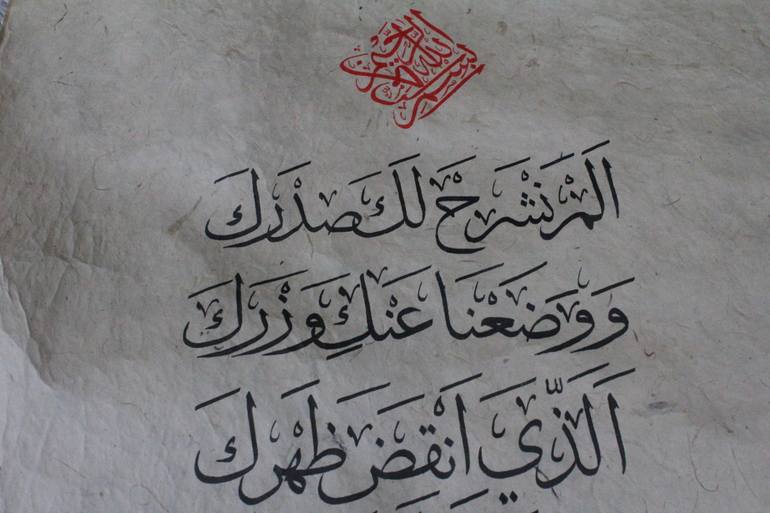 بسم الله الرحمن الرحيم
اَلَمْ نَشْرَحْ لَكَ صَدْرَكَ
وَوَضَعْنَا عَنْكَ وِزْرَكَ
اَلَّذِي اَنْقَضَ ظَهْرَكَ